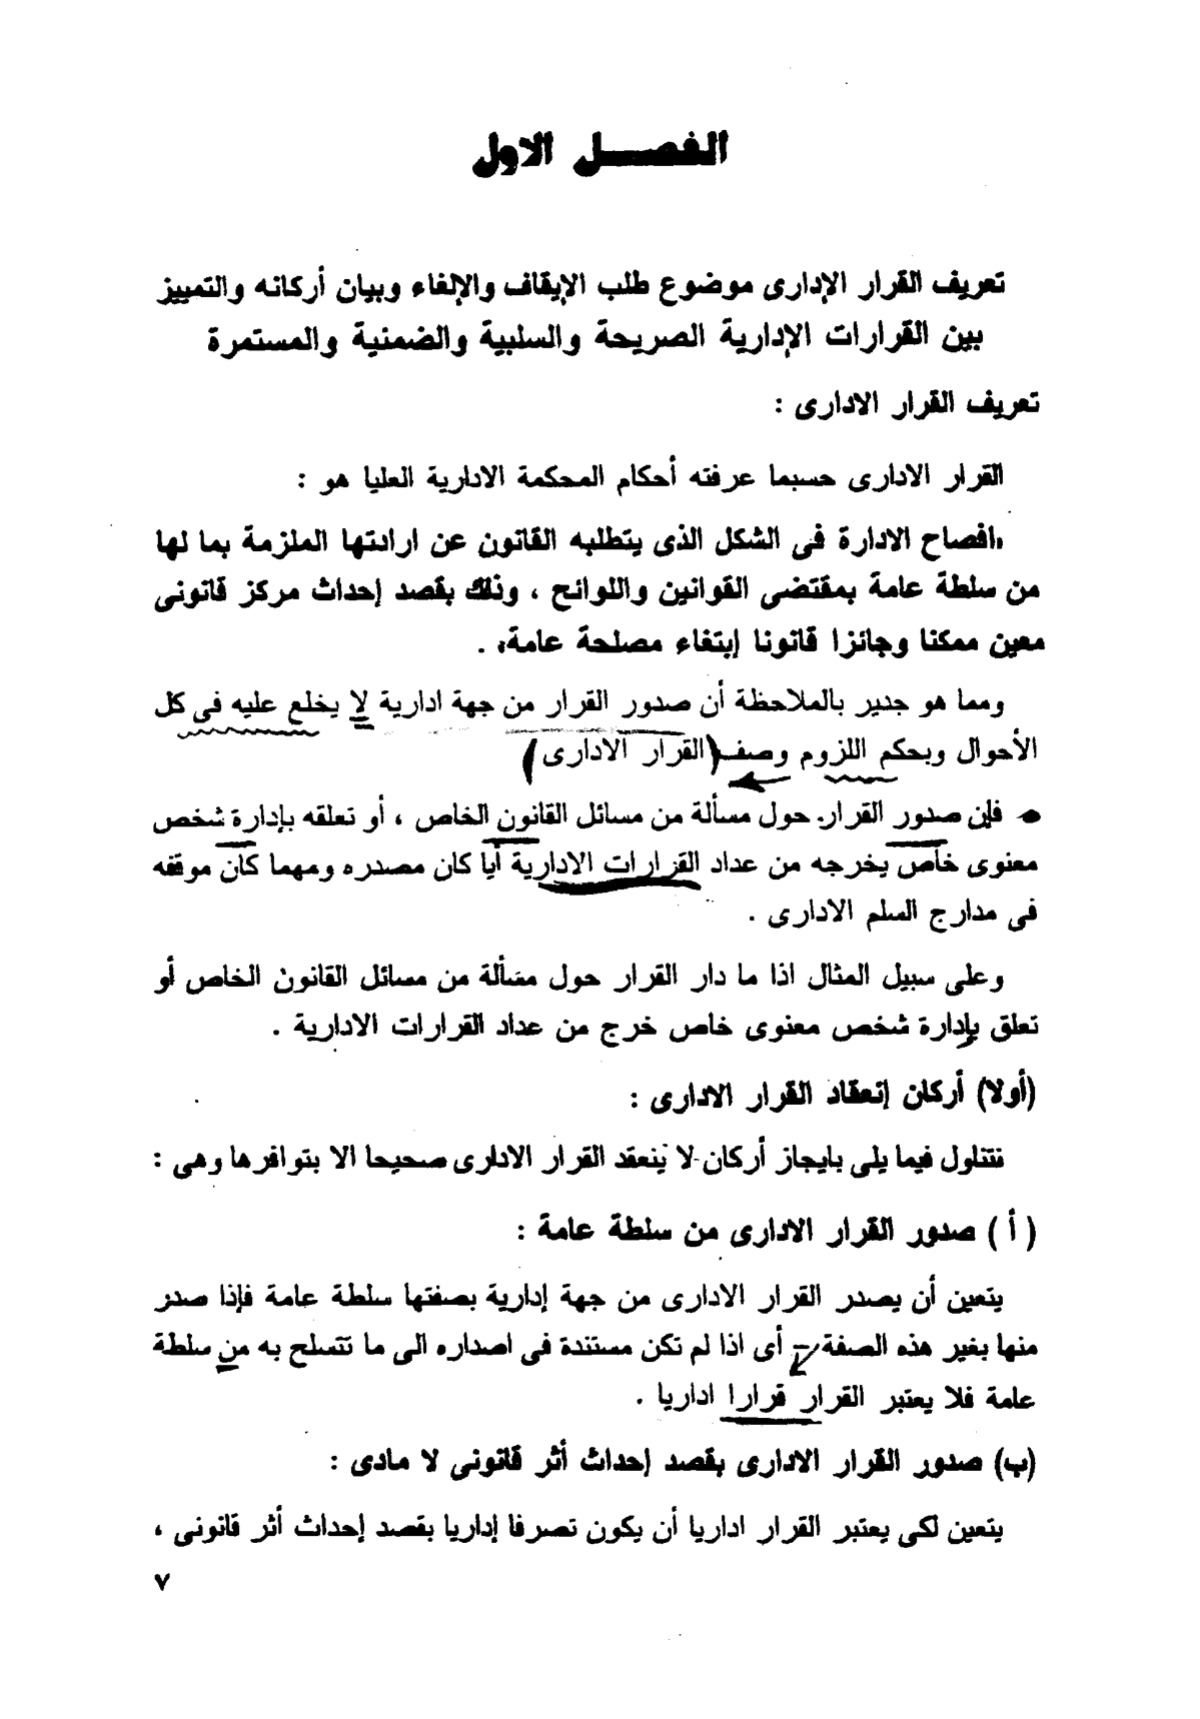 الفصل الاول
تعريف القرار الإدارى موضوع طلب الإيقاف والإلغاء وبيان أركانه والتمييز
بين القرارات الإدارية الصريحة والسلبية والضمنية والمستمرة
تعريف القرار الادارى :
القرار الادارى حسبما عرفته أحكام المحكمة الادارية العليا هو :
«افصاح الادارة فى الشكل الذى يتطلبه القانون عن ارادتها الملزمة بما لها
من سلطة عامة بمقتضى القوانين واللوائح ، وذلك بقصد إحداث مركز قانونى
معين ممكنا وجائزا قانونا إبتغاء مصلحة عامة» .
ومما هو جدير بالملاحظة أن صدور القرار من جهة ادارية لا يخلع عليه فى كل
الأحوال وبحكم اللزوم وصف (القرار الادارى)
فإن صدور القرار حول مسألة من مسائل القانون الخاص ، أو تعلقه بإدارة شخص
معنوى خاص يخرجه من عداد القرارات الادارية أيا كان مصدره ومهما كان موقفه
فى مدارج السلم الادارى .
وعلى سبيل المثال اذا ما دار القرار حول مسألة من مسائل القانون الخاص أو
تعلق بإدارة شخص معنوى خاص خرج من عداد القرارات الادارية .
(أولا) أركان إنعقاد القرار الادارى :
نتناول فيما يلى بايجاز أركان لا ينعقد القرار الادارى صحيحا الا بتوافرها وهى :
( أ ) صدور القرار الادارى من سلطة عامة :
يتعين أن يصدر القرار الادارى من جهة إدارية بصفتها سلطة عامة فإذا صدر
منها بغير هذه الصفة - أى اذا لم تكن مستندة فى اصداره الى ما تتسلح به من سلطة
عامة فلا يعتبر القرار قرارا اداريا .
(ب) صدور القرار الادارى بقصد إحداث أثر قانونى لا مادى :
يتعين لكى يعتبر القرار اداريا أن يكون تصرفا إداريا بقصد إحداث أثر قانونى ،
٧